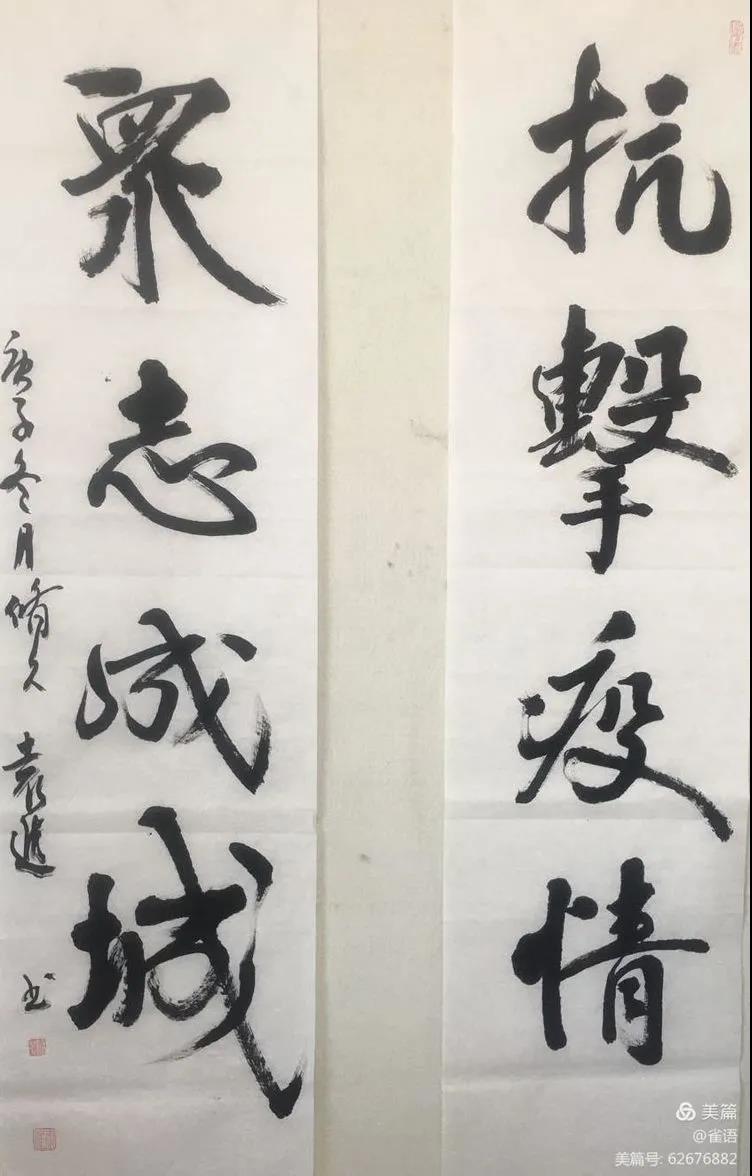 抗擊疫情
眾志成城
庚子冬月脩久袁進書
美篇
@雀语
美篇号: 62676882